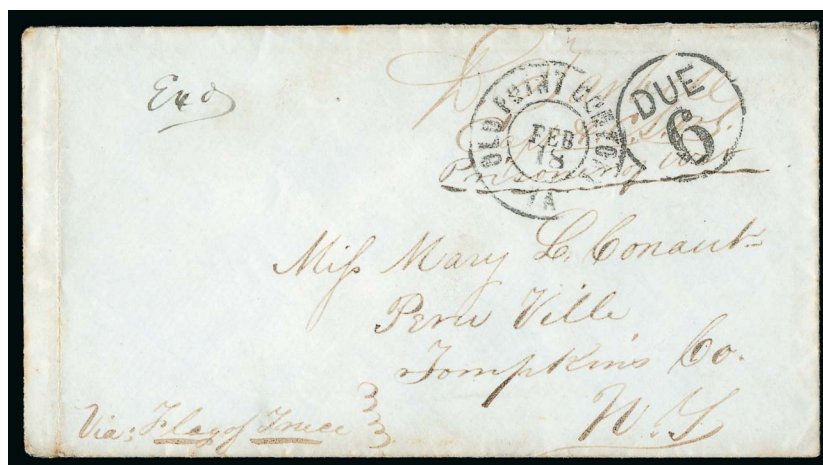 Exd
OLD POINT COMFORT
FEB
18
VA
DUE
6
Prisoner of War
Miss Mary L. Conant
Peru Ville
Tompkins Co.
N.Y
Via: Flag of Truce